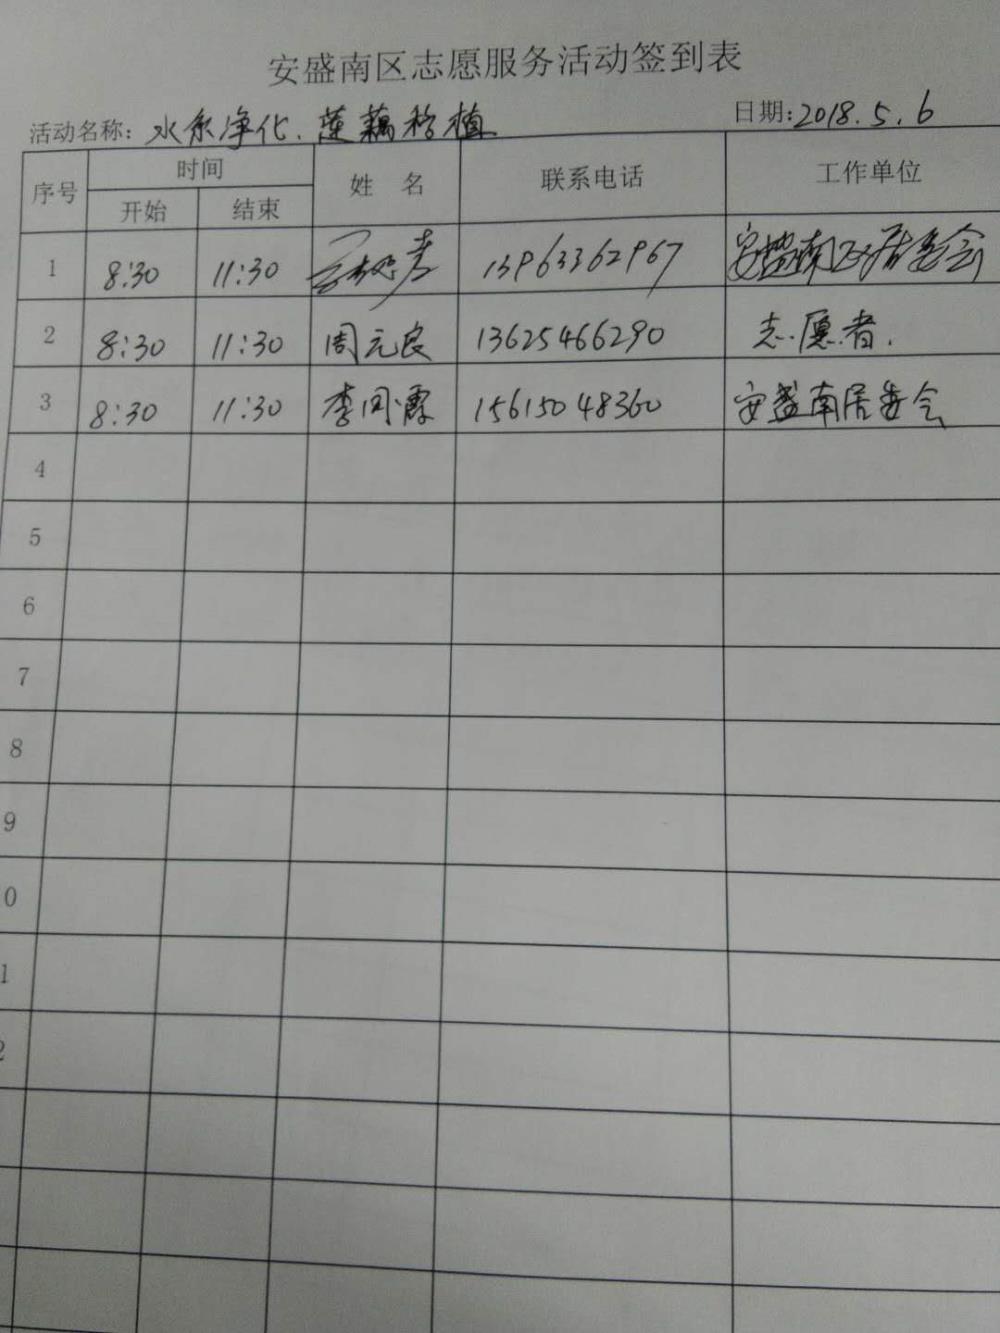 安盛南区志愿服务活动签到表
活动名称: 水系净化、莲藕移植 日期: 2018.5.6
序号 时间 姓 名 联系电话 工作单位
开始 结束
1 8:30 11:30 13963362967 安盛南区居委会
2 8:30 11:30 周元良 13625466290 志愿者.
3 8:30 11:30 李同霞 15615048360 安盛南居委会
4
5
6
7
8
9
0
1
2